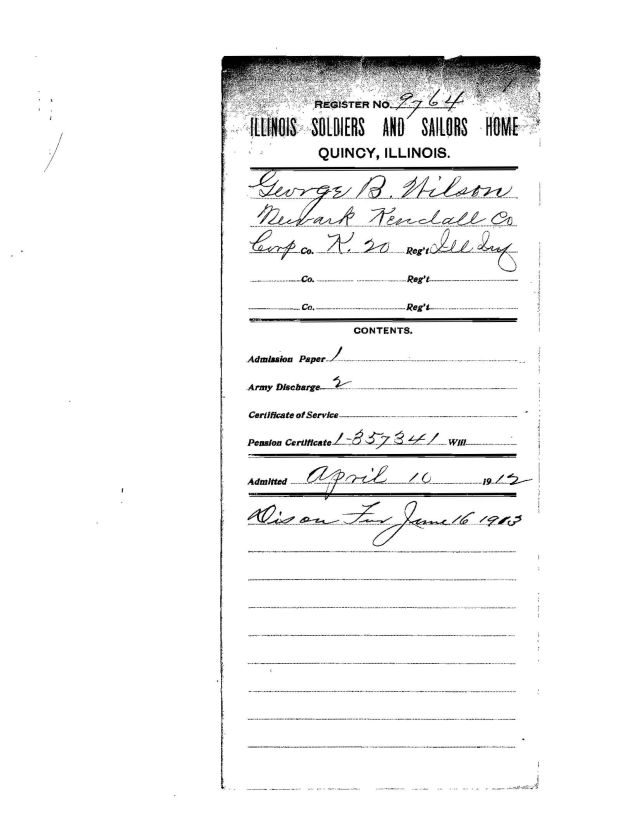 REGISTER No. 9764
ILLINOIS SOLDIERS AND SAILORS HOME
QUINCY, ILLINOIS.
George B. Wilson
Newark Kendall Co
Corp Co. K. 20 Reg't Ill Inf
Co. Reg't
Co. Reg't
CONTENTS.
Admission Paper 1
Army Discharge 2
Certificate of Service
Pension Certificate 1-857341 Will
Admitted April 10 1912
Dis on Fur June 16 1913